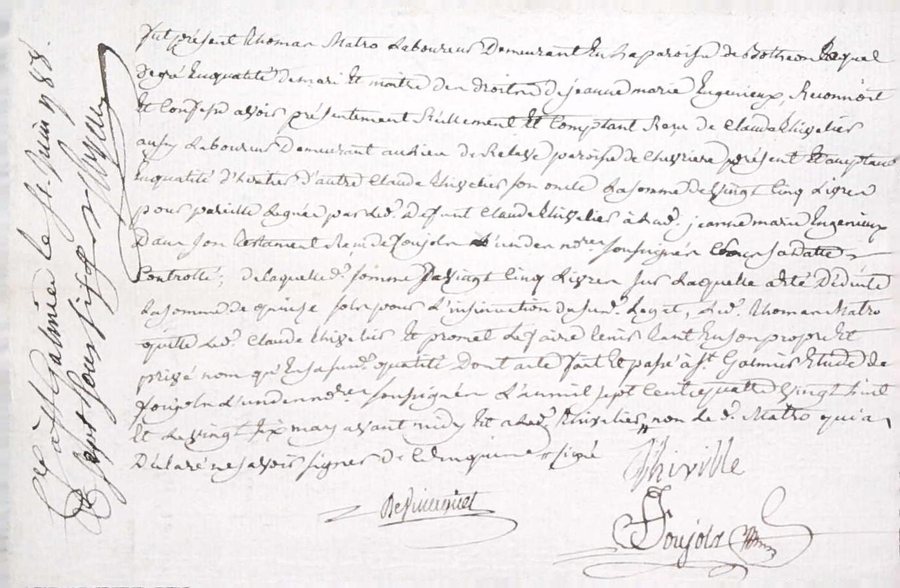 fut présent thomas Matro Laboureur Demeurant En La paroisse de Botheon Lequel
de gré En qualité de mari Et maitre des droits de jeanne marie Eugenieux, Reconnoit
Et Confesse avoir présentement Réellement Et Comptant Recu de Claude thivelier
aussy Laboureur Demeurant au Lieu de paroisse de Chevriere présent Et acceptant
En qualité d'heritier d'autre Claude thivelier son oncle La somme de vingt Cinq Livres
pour pareille Leguée par Led. Defunt Claude thivelier à Lad. jeanne marie Eugenieux
Dans son testament Recu de Soujols L'un des nores soussignés sa datte
Controllé; de laquelle d. somme de vingt Cinq Livres sur Laquelle a été Déduite
La somme de quinze sols pour L'insinuation du sud. Legat, Led. thomas Matro
quitte Led. Claude thivelier Et promet Le faire tenir tant En son propre Et
privé nom qu'En sa susd. qualité Dont acte fait Et passé à St. Galmier Etude de
Soujols L'un des nores soussignés L'an mil sept Cent quatre vingt huit
Et Le vingt six may avant midy Et a Led. thivelier, non Le d. Matro qui a
Déclaré ne savoir signer de Ce Enquis signé
thiville
Soujols
Ctlé à St Galmier le juin 1788.
Rt sept sous six d